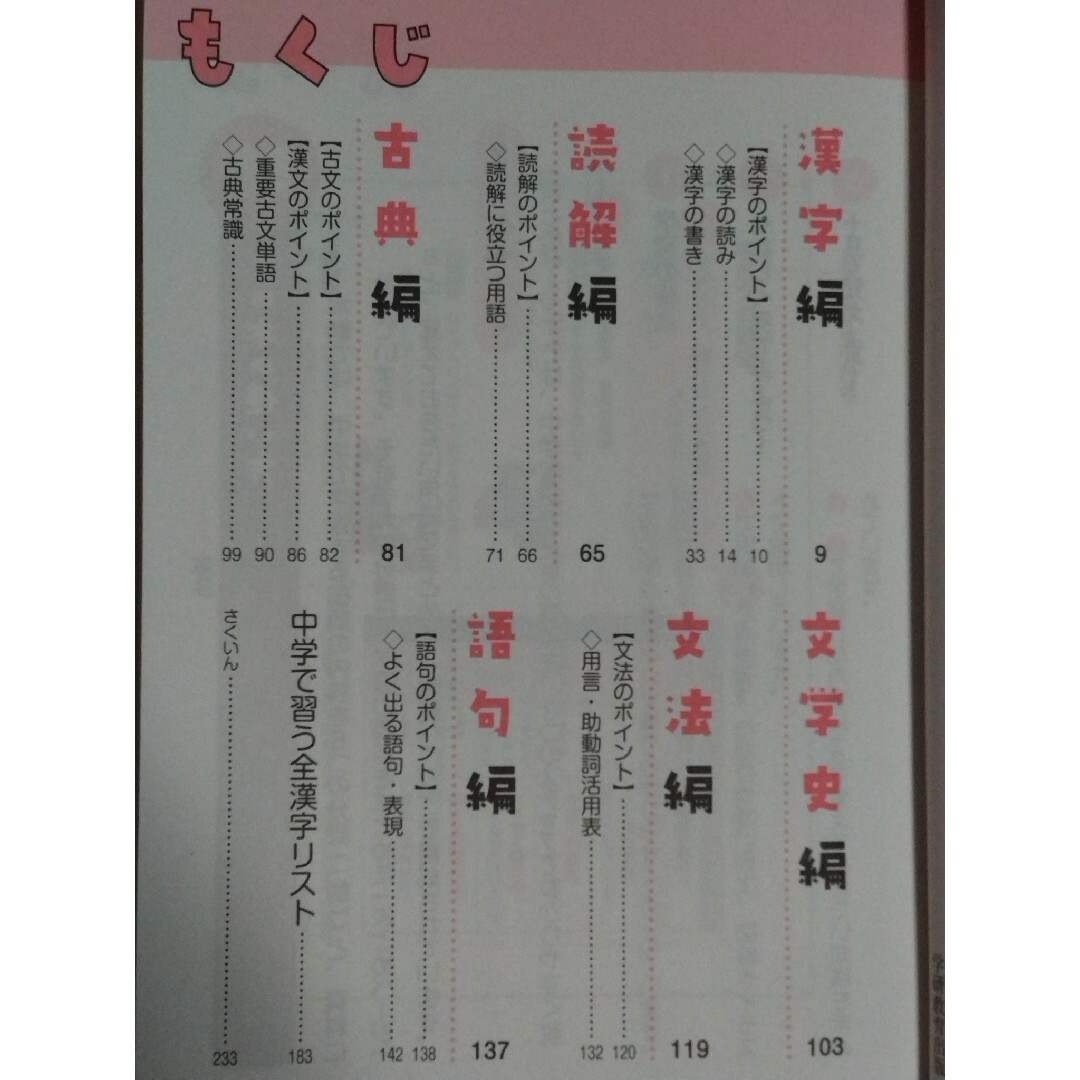 もくじ
漢字編 9
【漢字のポイント】 10
◇漢字の読み 14
◇漢字の書き 33
読解編 65
【読解のポイント】 66
◇読解に役立つ用語 71
古典編 81
【古文のポイント】 82
【漢文のポイント】 86
◇重要古文単語 90
◇古典常識 99
文学史編 103
文法編 119
【文法のポイント】 120
◇用言・助動詞活用表 132
語句編 137
【語句のポイント】 138
◇よく出る語句・表現 142
中学で習う全漢字リスト 183
さくいん 233